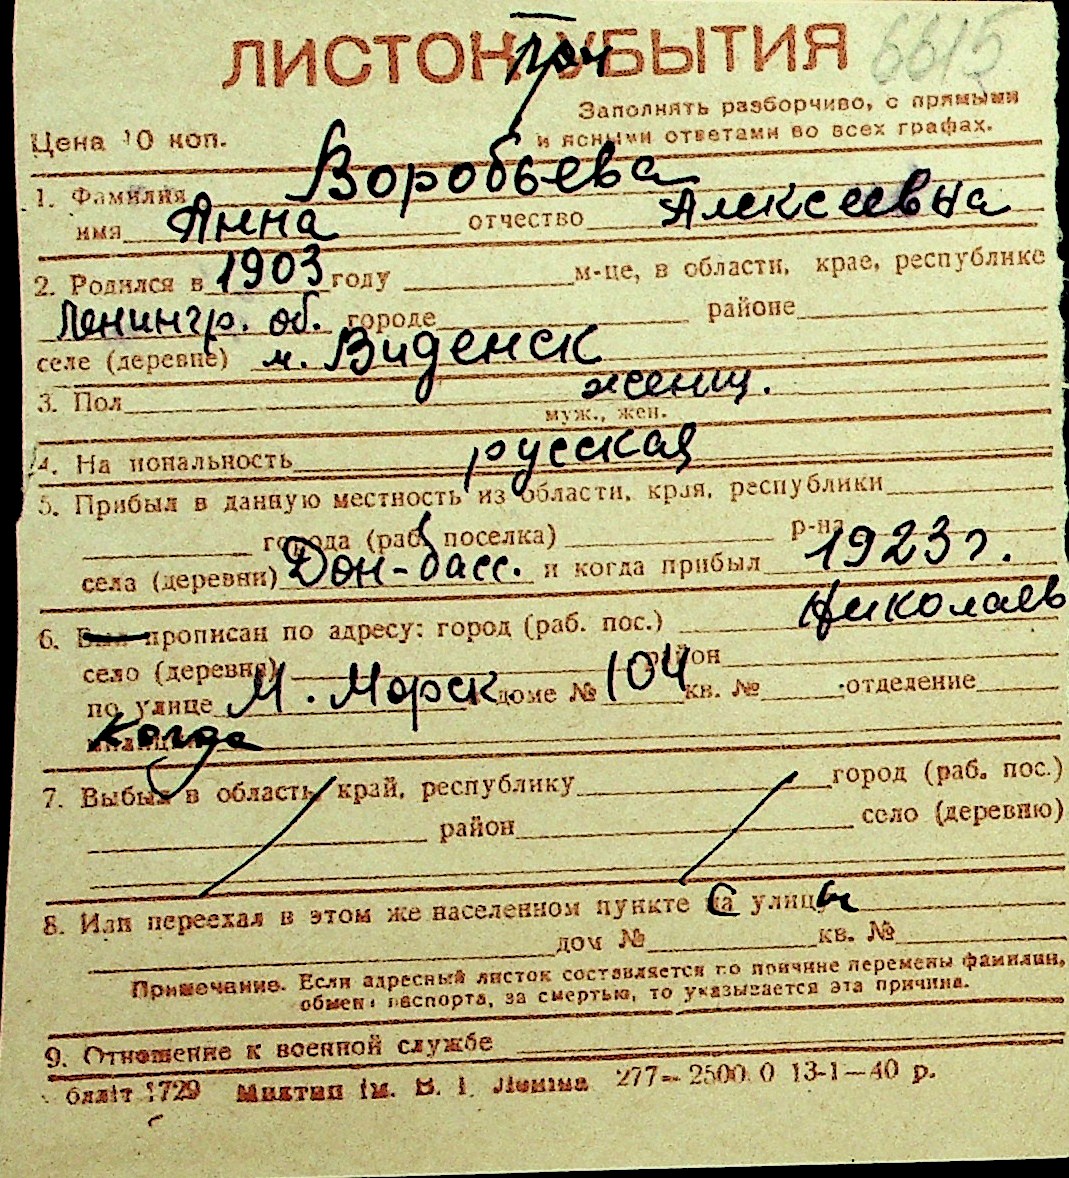 ЛИСТОК УБЫТИЯ
6615
Заполнять разборчиво, с прямыми
и ясными ответами во всех графах.
Цена 10 коп.
1. Фамилия Воробьева
имя Анна отчество Алексеевна
2. Родился в 1903 году м-це, в области, крае, республике
Ленингр. об. городе районе
селе (деревне) м. Виденск
3. Пол женщ.
муж., жен.
4. На иональность русская
5. Прибыл в данную местность из области, края, республики
города (раб. поселка) р-на
села (деревни) Дон-басс. и когда прибыл 1923 г.
6. Был прописан по адресу: город (раб. пос.) Николаев
село (деревня) район
по улице М. Морск доме № 104 кв. № отделение
Когда
7. Выбыл в область, край, республику город (раб. пос.)
район село (деревню)
8. Или переехал в этом же населенном пункте с улицы
дом № кв. №
Примечание. Если адресный листок составляется по причине перемены фамилии,
обмена паспорта, за смертью, то указывается эта причина.
9. Отношение к военной службе
1729 Миктип ім. В. І. Леніна 277—2500.0 13-1—40 р.